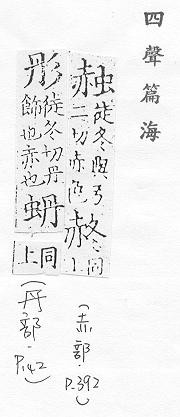 四聲篇海
赨徒冬與弓
二切赤色 同
上
(赤部.P.392)
彤徒冬切丹
飾也赤也蚒同
上
(丹部.P.142)